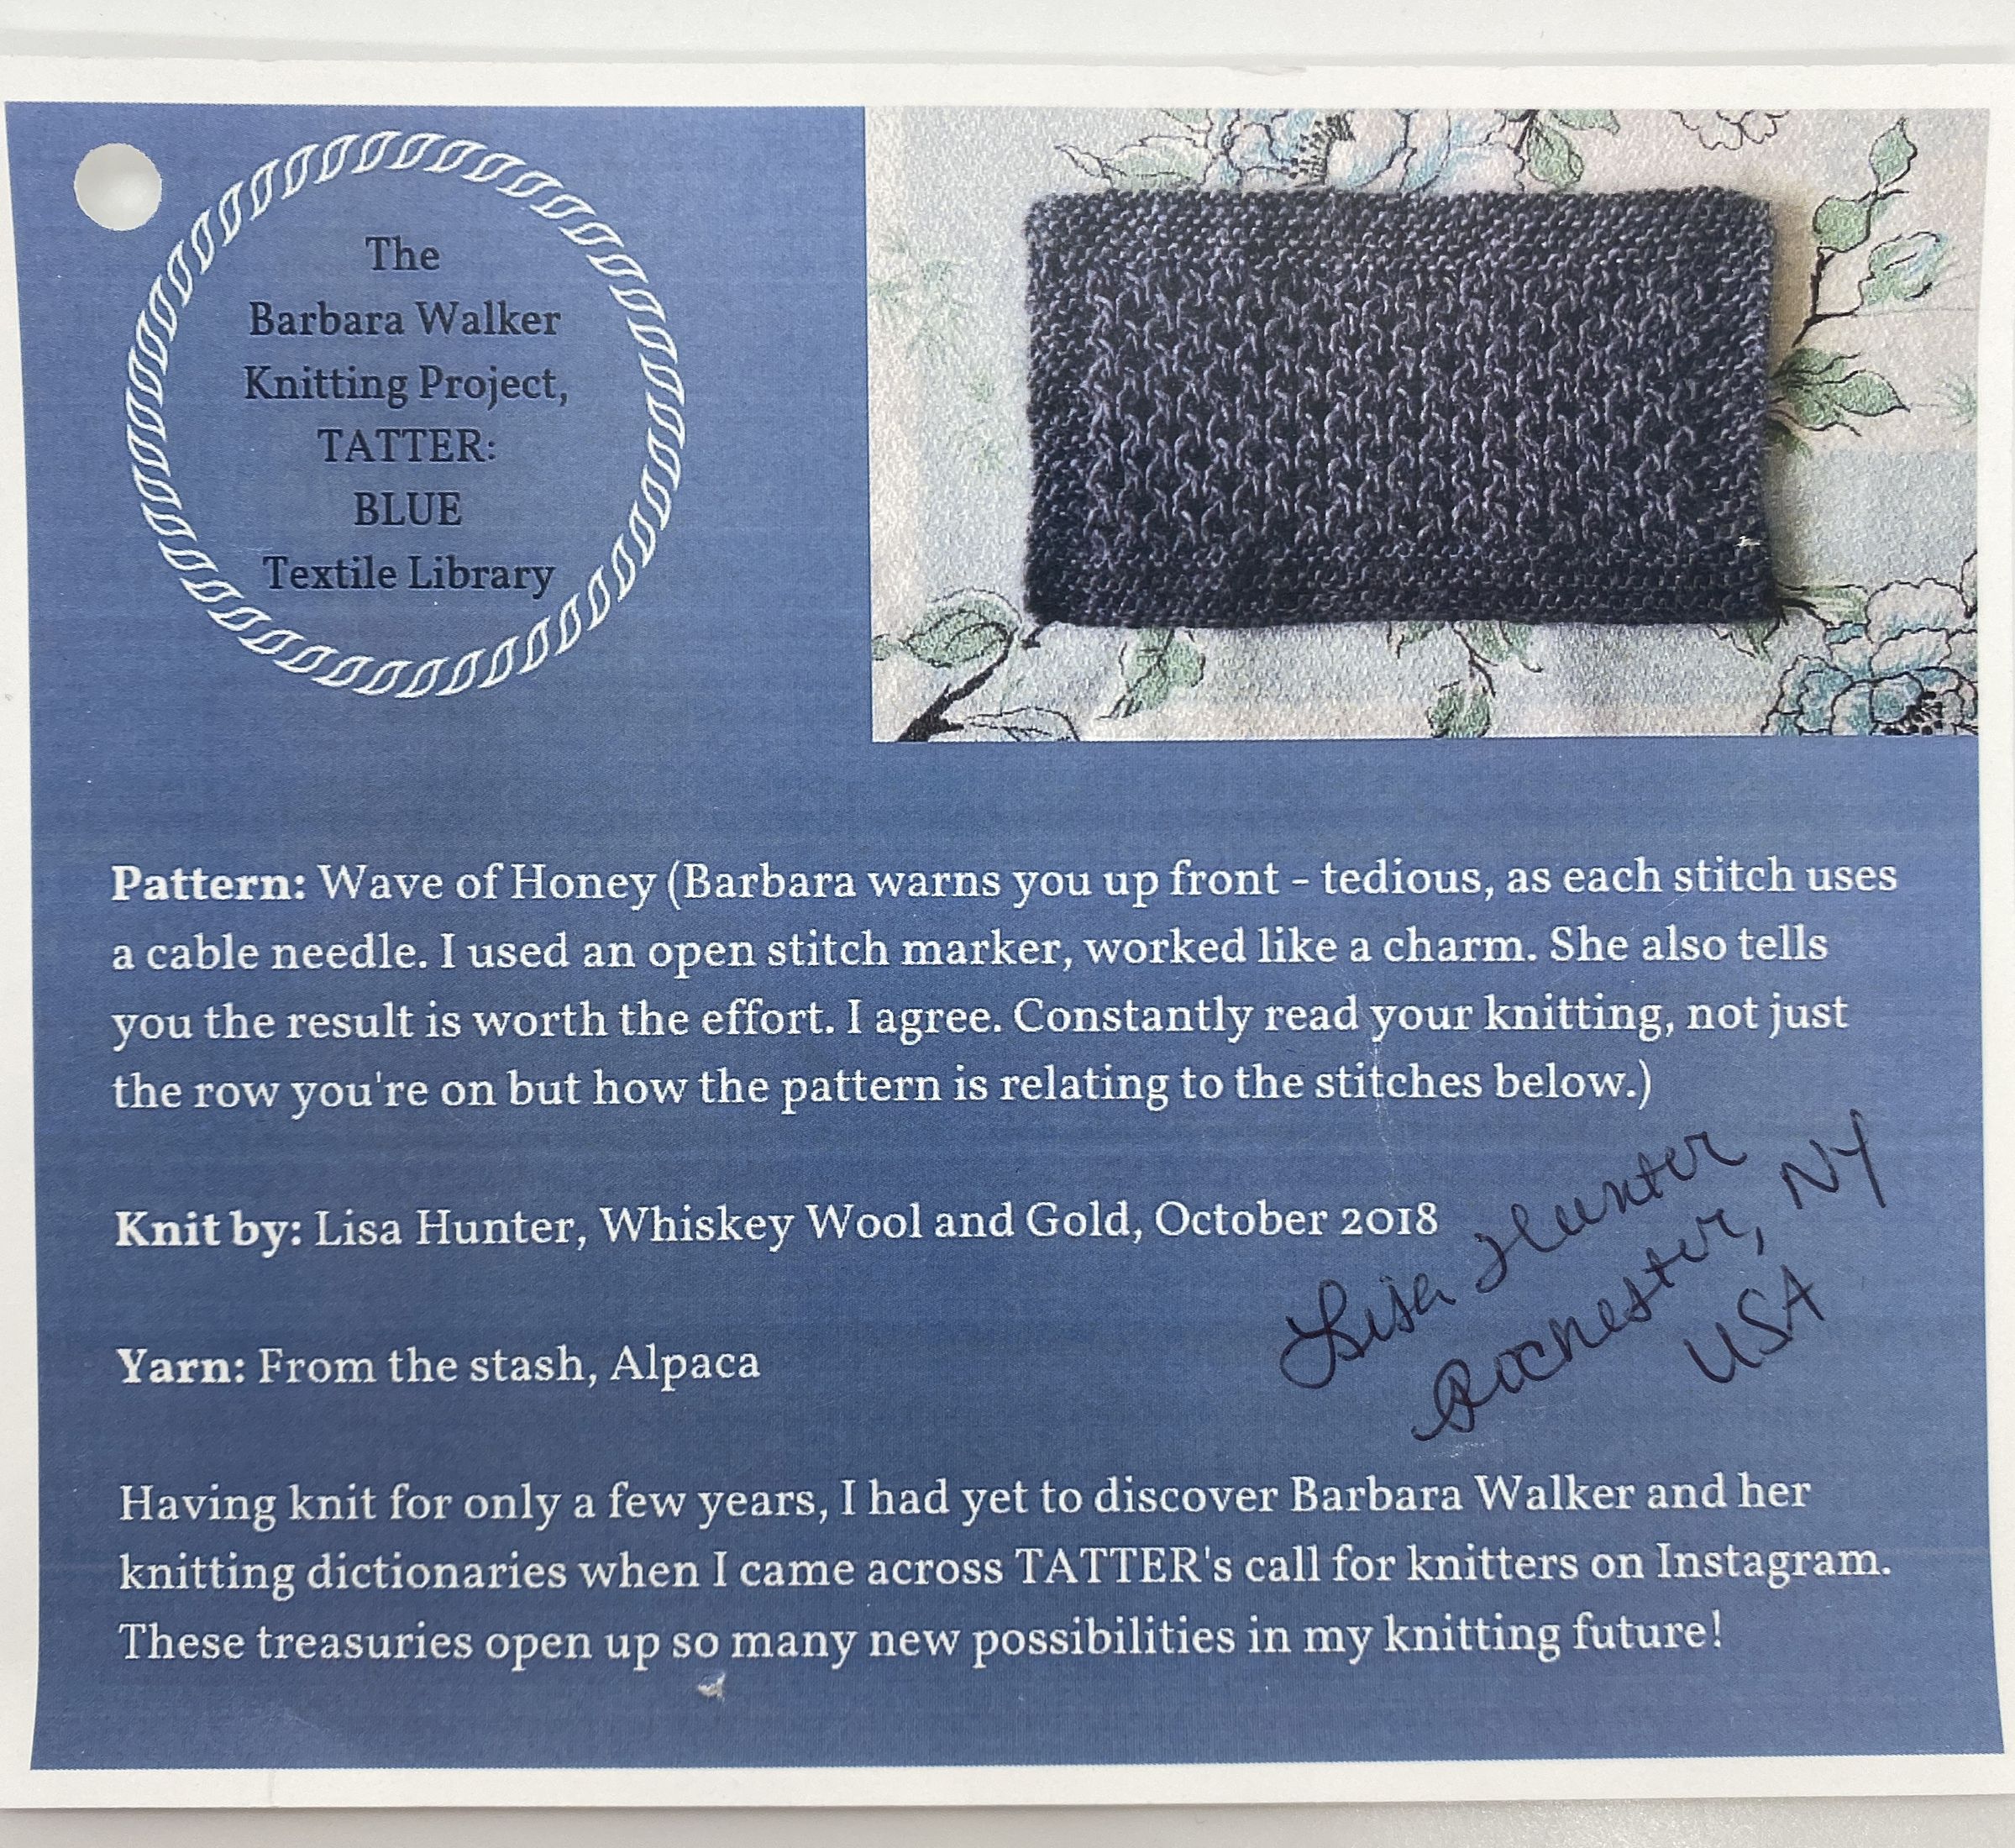 The
Barbara Walker
Knitting Project,
TATTER:
BLUE
Textile Library
Pattern: Wave of Honey (Barbara warns you up front - tedious, as each stitch uses
a cable needle. I used an open stitch marker, worked like a charm. She also tells
you the result is worth the effort. I agree. Constantly read your knitting, not just
the row you're on but how the pattern is relating to the stitches below.)
Knit by: Lisa Hunter, Whiskey Wool and Gold, October 2018
Lisa Hunter
Rochester, NY
USA
Yarn: From the stash, Alpaca
Having knit for only a few years, I had yet to discover Barbara Walker and her
knitting dictionaries when I came across TATTER's call for knitters on Instagram.
These treasuries open up so many new possibilities in my knitting future!